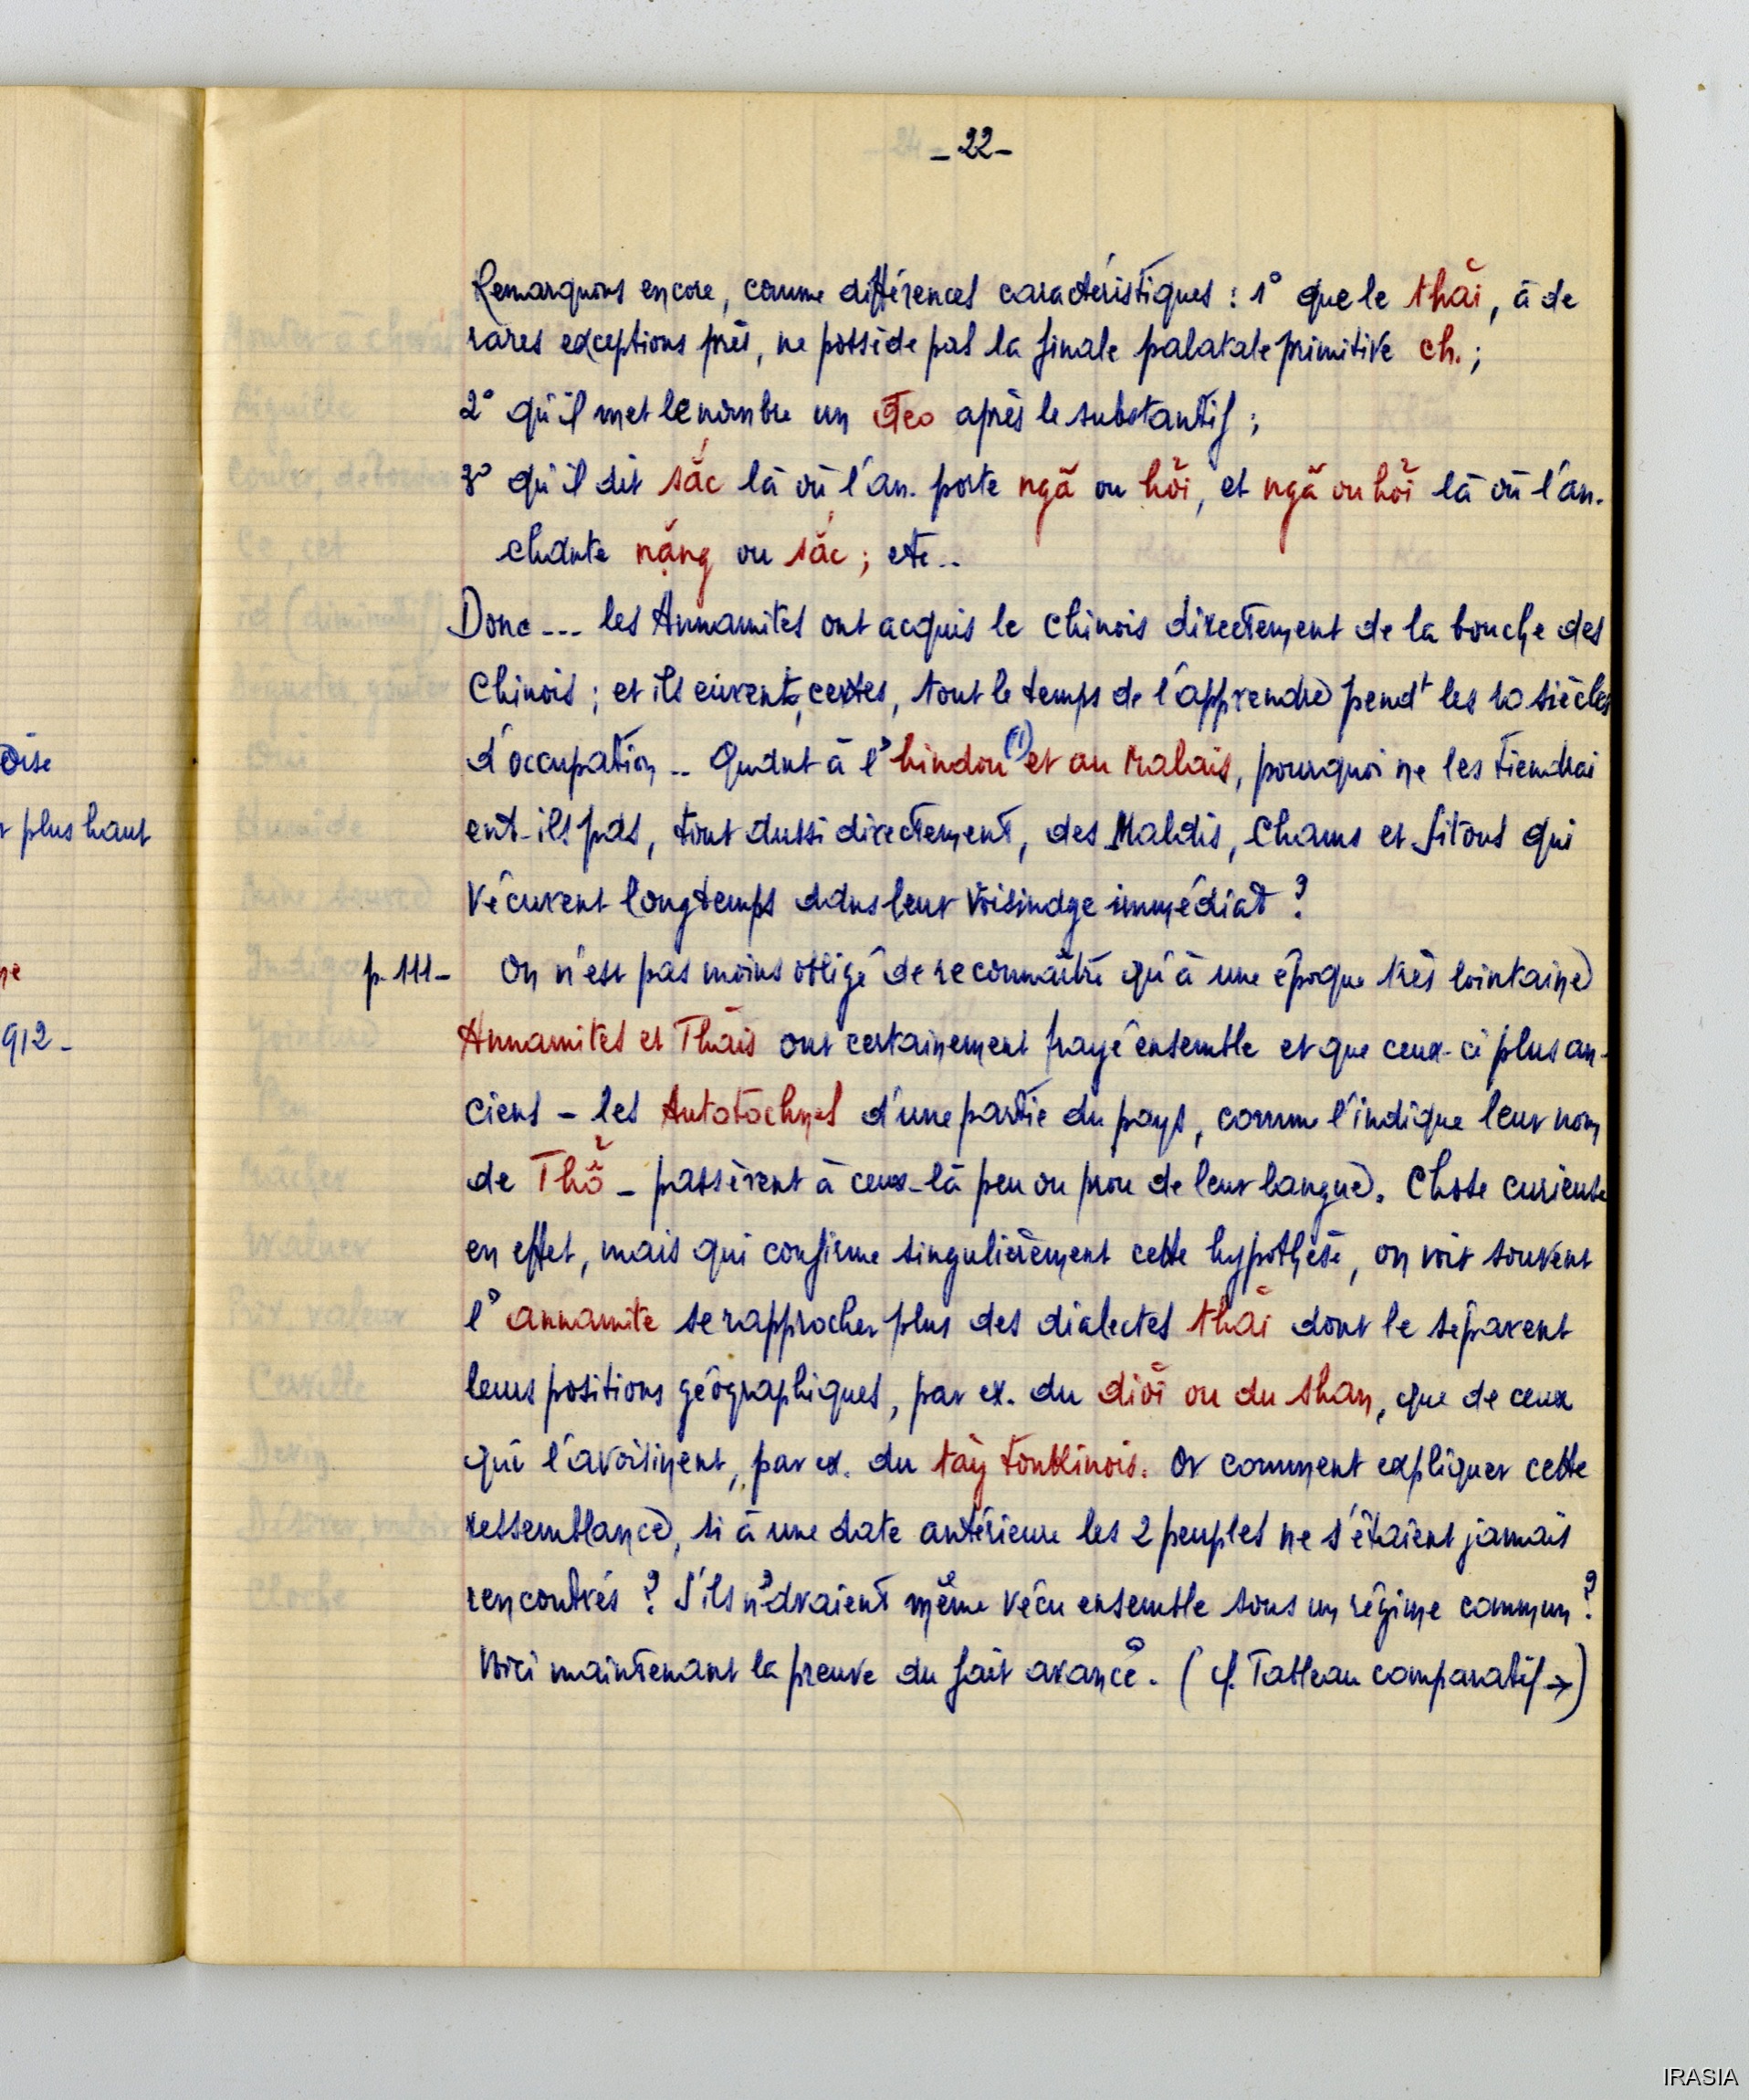 - 22 -
Remarquons encore, comme différences caractéristiques : 1° que le thăi, à de
rares exceptions près, ne possède pas la finale palatale primitive ch. ;
2° qu'il met le nombre un đeo après le substantif ;
3° qu'il dit sắc là où l'an. porte ngã ou hỏi, et ngã ou hỏi là où l'an.
chante nặng ou sắc ; etc..
Donc --- les Annamites ont acquis le chinois directement de la bouche des
Chinois ; et ils eurent, certes, tout le temps de l'apprendre pendt les 10 siècles
d'occupation -- Quant à l'hindou (1) et au Malais, pourquoi ne les tiendrai
ent-ils pas, tout aussi directement, des Malais, Chams et qui
vécurent longtemps dans leur voisinage immédiat ?
p. 111 - On n'est pas moins obligé de reconnaître qu'à une époque très lointaine
Annamites et Thăis ont certainement frayé ensemble et que ceux-ci plus an-
ciens - les Autotochnes d'une partie du pays, comme l'indique leur nom
de Thổ - passèrent à ceux-là peu ou prou de leur langue. Chose curieuse
en effet, mais qui confirme singulièrement cette hypothèse, on voit souvent
l'annamite se rapprocher plus des dialectes thăi dont le séparent
leurs positions géographiques, par ex. du dioi ou du shan, que de ceux
qui l'avoisinent, par ex. du tày tonkinois. Or comment expliquer cette
ressemblance, si à une date antérieure les 2 peuples ne s'étaient jamais
rencontrés ? S'ils n'avaient même vécu ensemble sous un régime commun ?
Voici maintenant la preuve du fait avancé. (cf. Tableau comparatif →)
oise
plus haut
912 -
IRASIA